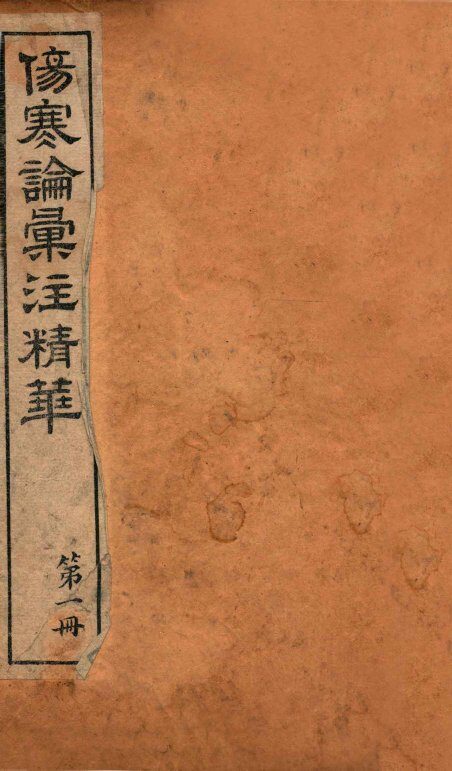 傷寒論彙注精華
第一冊